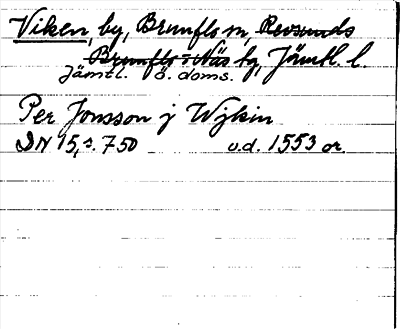 Viken, by, Brunflo sn, Revsunds
Brunflo-Näs tg, Jämtl. l.
Jämtl. ö. doms.
Per Jonsson j Wijkin
DN 15, s. 750 u.d. 1553 or.